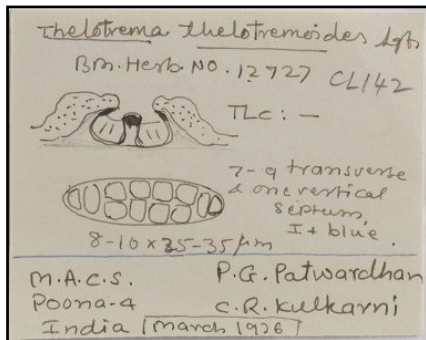 Thelotrema thelotremoides
Bm. Herb. NO. 12727 CL142
TLC: —
7-9 transverse
& one vertical
septum,
I+ blue.
8-10 x 25-35 µm
M.A.C.S. P.G. Patwardhan
Poona-4 C.R. Kulkarni
India [March 1976]